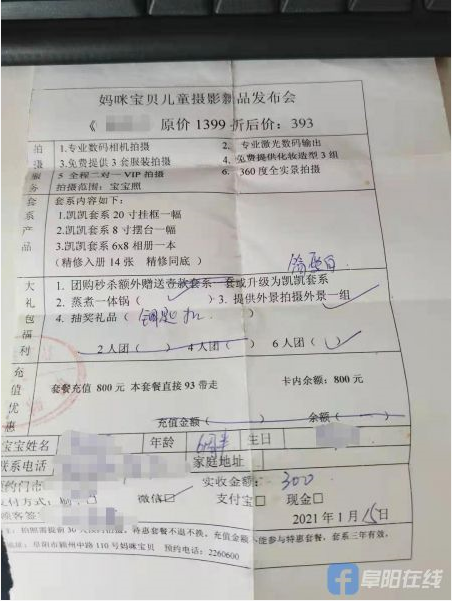 妈咪宝贝儿童摄影新品发布会
《 原价 1399 折后价：393
拍摄服务
1.专业数码相机拍摄 2、专业激光数码输出
3.免费提供 3 套服装拍摄 4、免费提供化妆造型 3 组
5 全程二对一 VIP 拍摄 6、360 度全实景拍摄
拍摄范围：宝宝照
套系产品
套系内容如下：
1.凯凯套系 20 寸挂框一幅
2.凯凯套系 8 寸摆台一幅
3.凯凯套系 6x8 相册一本
(精修入册 14 张 精修同底)
大礼包福利
1. 团购秒杀额外赠送壹款套系一套或升级为凯凯套系
2. 蒸煮一体锅( ) 3. 提供外景拍摄外景一组
4. 抽奖礼品（钥匙扣）
2 人团( ) 4 人团( ) 6 人团( )
充值优惠
套餐充值 800 元 本套餐直接 93 带走 卡内余额：800 元
充值金额( ) 余额( )
宝宝姓名 年龄 生日
联系电话 家庭地址
预约门市 实收金额：300
支付方式： 微信 支付宝□ 现金□
顾客签 2021 年 1 月 15 日
注：拍照需提前 30 天预约拍摄，特惠套餐不退不换，充值金额不能参与特惠套餐，套系三年有效，
地址：阜阳市颍州中路 110 号妈咪宝贝 预约电话：2260600
阜阳在线